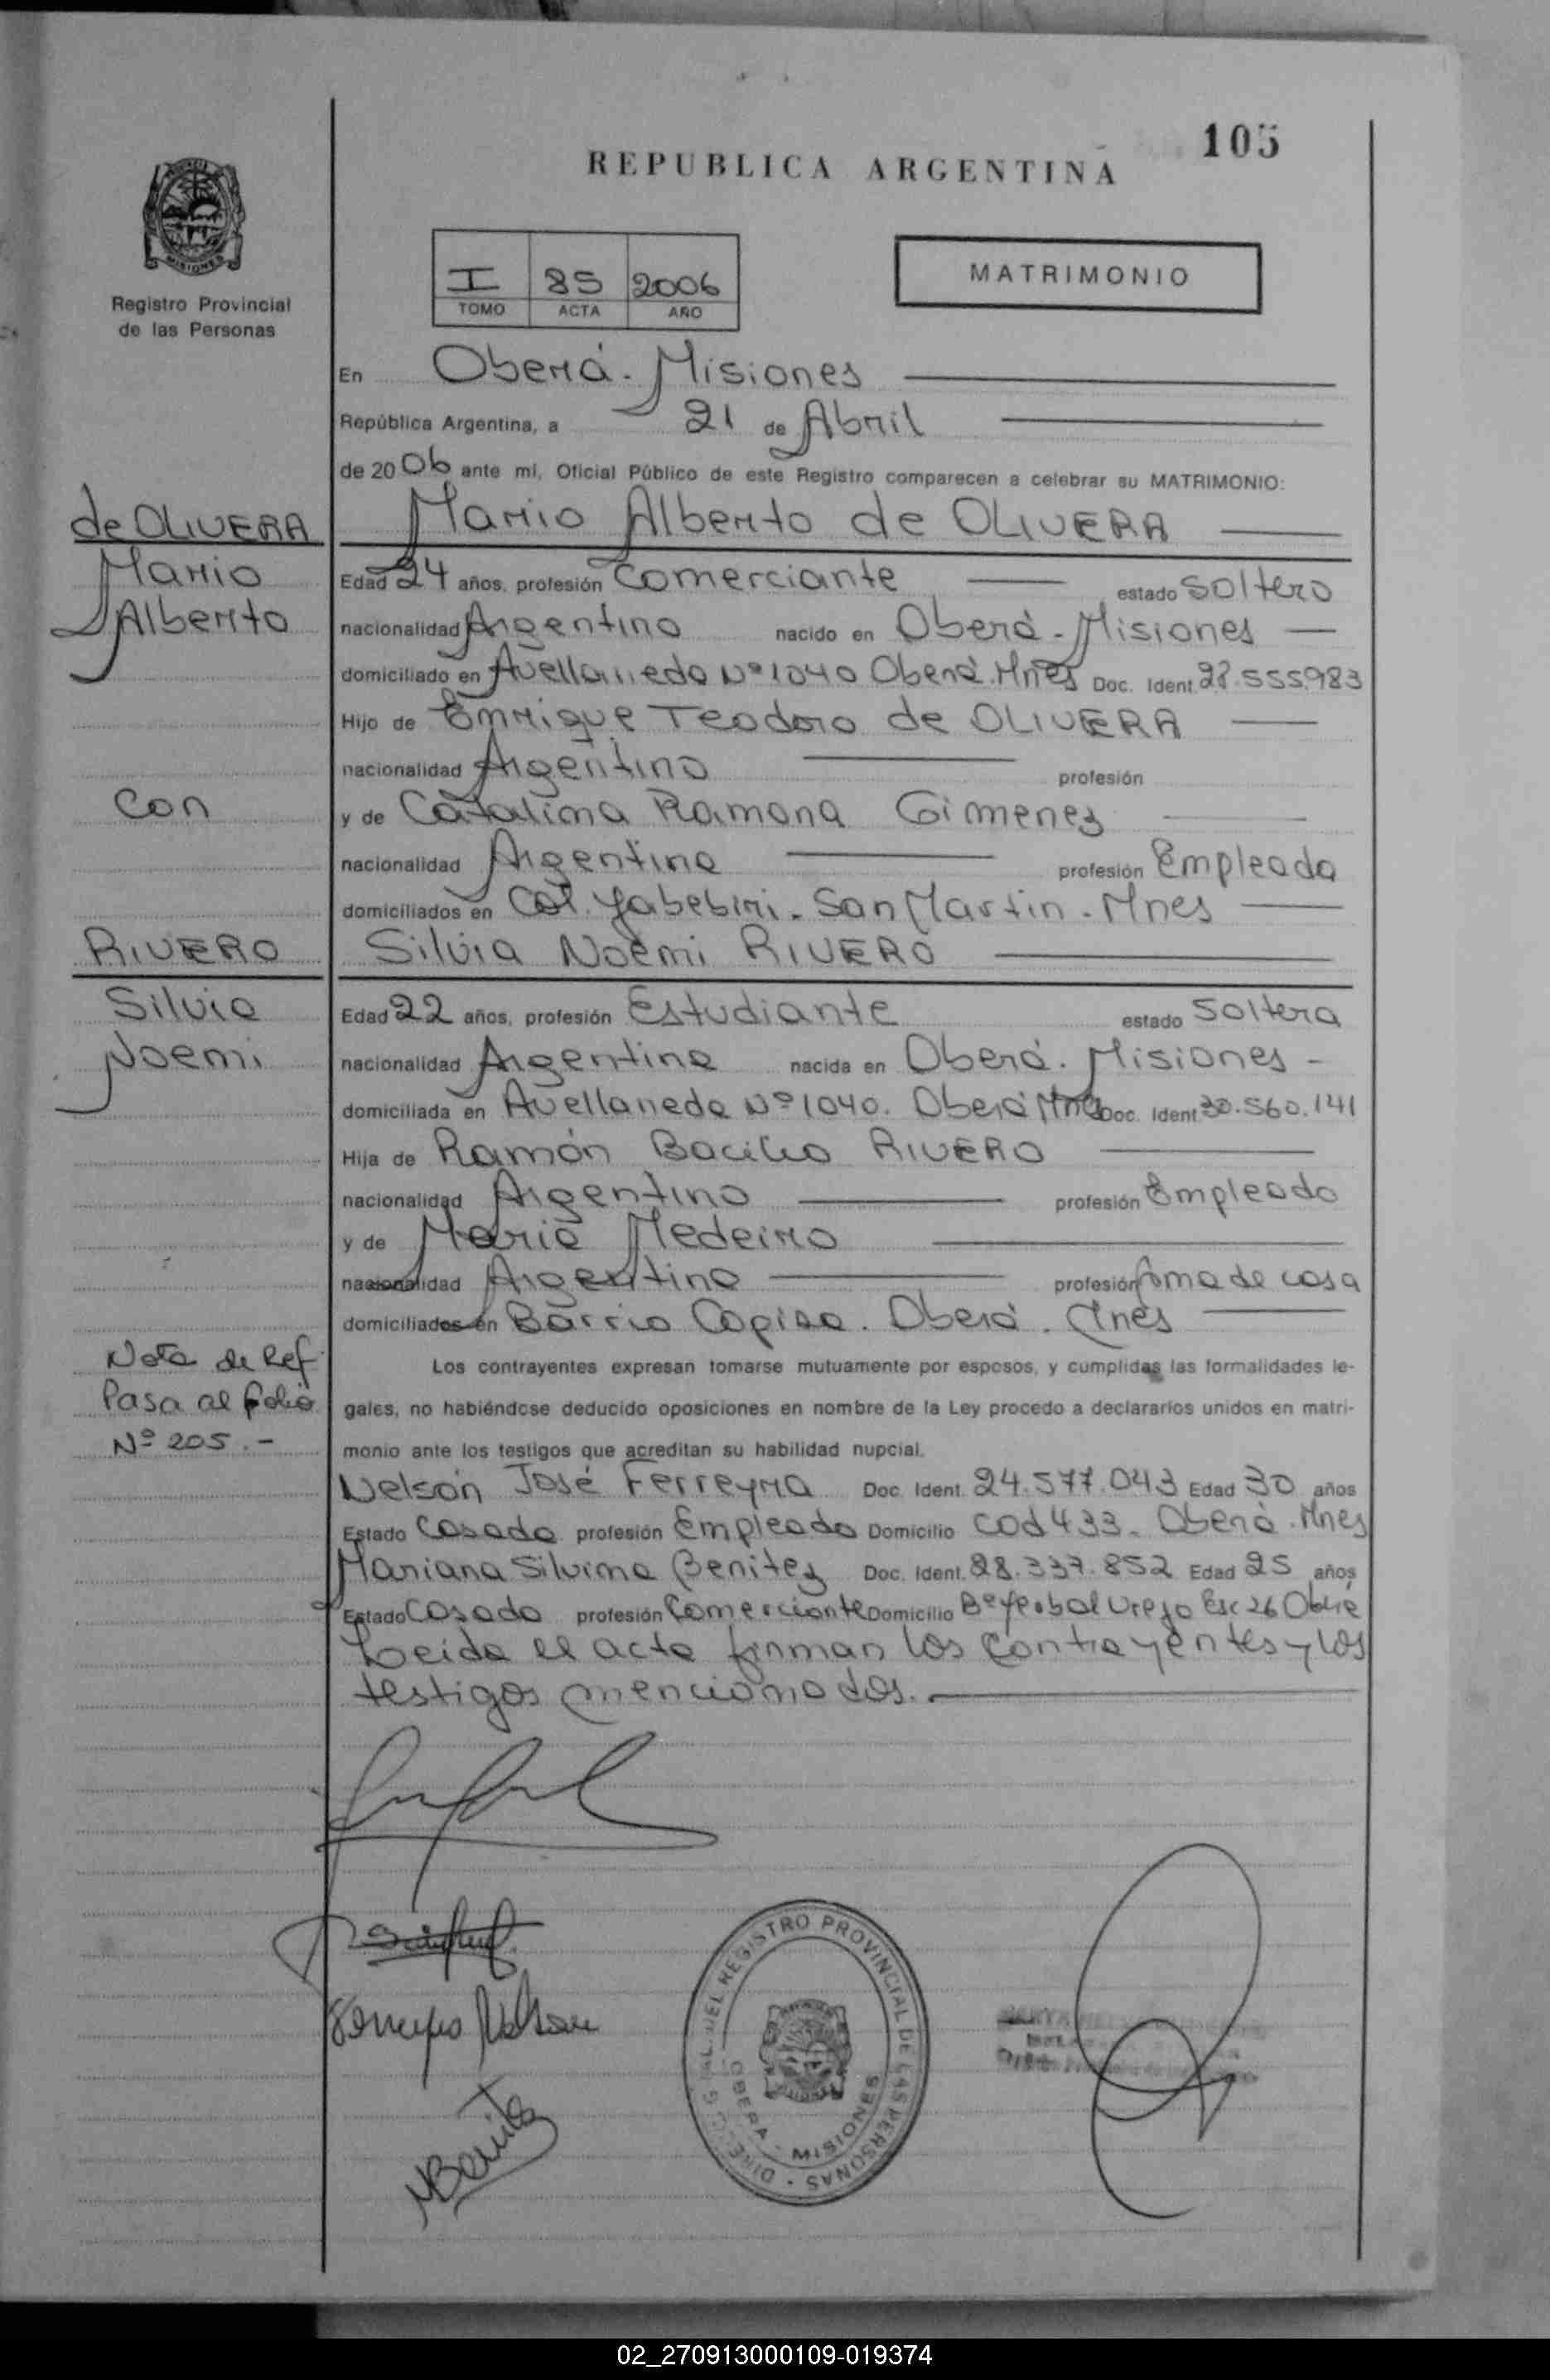 105
REPUBLICA ARGENTINA
MISIONES
Registro Provincial
de las Personas
I 85 2006
TOMO ACTA AÑO
MATRIMONIO
En Oberá. Misiones
República Argentina, a 21 de Abril
de 2006 ante mí, Oficial Público de este Registro comparecen a celebrar su MATRIMONIO:
de OLIVERA
Mario Alberto de OLIVERA
Mario
Edad 24 años, profesión Comerciante estado Soltero
Alberto
nacionalidad Argentina nacido en Oberá - Misiones
domiciliado en Avellaneda Nº 1040 Oberá. Mnes Doc. Ident. 28.555.983
Hijo de Enrique Teodoro de OLIVERA
nacionalidad Argentino profesión
Con
y de Catalina Ramona Gimenez
nacionalidad Argentina profesión Empleada
domiciliados en Col. Yabebiri. San Martin. Mnes
RIVERO
Silvia Noemi RIVERO
Silvia
Edad 22 años, profesión Estudiante estado Soltera
Noemi
nacionalidad Argentina nacida en Oberá. Misiones -
domiciliada en Avellaneda Nº 1040. Oberá Mnes Doc. Ident. 30.560.141
Hija de Ramón Bacilio RIVERO
nacionalidad Argentino profesión Empleado
y de Maria Medeiro
nacionalidad Argentina profesión ama de casa
domiciliados en Barrio Copisa. Oberá. Mnes
Nota de Ref
Pasa al folio
Nº 205.-
Los contrayentes expresan tomarse mutuamente por esposos, y cumplidas las formalidades le-
gales, no habiéndose deducido oposiciones en nombre de la Ley procedo a declararlos unidos en matri-
monio ante los testigos que acreditan su habilidad nupcial.
Nelson José Ferreyra Doc. Ident. 24.577.043 Edad 30 años
Estado Casado profesión Empleado Domicilio Cod 433. Oberá. Mnes
Mariana Silvina Benitez Doc. Ident. 28.337.852 Edad 25 años
Estado Casada profesión Comerciante Domicilio Bº Yerbal Viejo Esc 26
Leida el acta firman los contrayentes y los
testigos mencionados.
Nelson
MBenitez
DIREC. GRAL. DEL REGISTRO PROVINCIAL DE LAS PERSONAS
OBERA - MISIONES
02_270913000109-019374